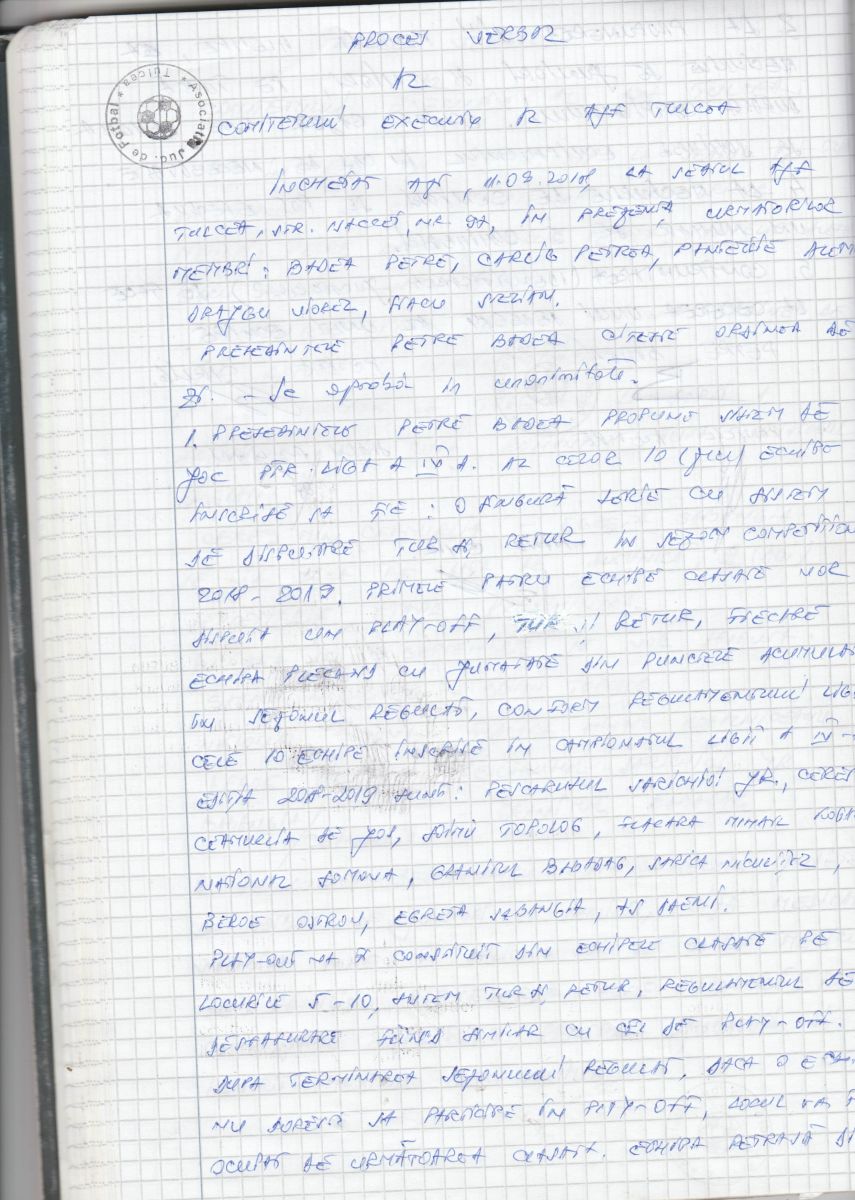 PROCES VERBAL
AL
Asociatia Jud. de Fotbal * Tulcea *
COMITETULUI EXECUTIV AL AJF TULCEA
INCHEIAT AZI, LA SEDIUL AJF
TULCEA, STR. NR. 9A, IN PREZENTA URMATORILOR
MEMBRI: BADEA PETRE, PETREA, PANTELIE
VIOREL,
PRESEDINTELE PETRE BADEA CITESTE ORDINEA DE
ZI. - Se aproba in unanimitate.
1. PRESEDINTELE PETRE BADEA PROPUNE SISTEM DE
JOC PTR. LIGA A IV A. AL CELOR 10 (zece) ECHIPE
INSCRISE SA FIE: O SINGURĂ SERIE CU SISTEM
DE DISPUTARE TUR SI RETUR IN SEZON COMPETITION
2018-2019. PRIMELE PATRU ECHIPE CLASATE VOR
DISPUTA UN PLAY-OFF, TUR SI RETUR, FIECARE
ECHIPA PLECAND CU JUMATATE DIN PUNCTELE ACUMULAT
IN SEZONUL REGULAT, CONFORM REGULAMENTULUI
CELE 10 ECHIPE INSCRISE IN CAMPIONATUL LIGII A IV-
EDITIA 2018-2019 SUNT: PESCARUSUL SARICHIOI JR.,
CEAMURLIA DE JOS, SOIMII TOPOLOG, FLACARA MIHAIL
NATIONAL SOMOVA, GRANITUL BABADAG, SARICA NICULITEL,
BEROE OSTROV, EGRETA SABANGIA, AS DAENI.
PLAY-OUT VA FI CONSTITUIT DIN ECHIPELE CLASATE PE
LOCURILE 5-10, SISTEM TUR SI RETUR, REGULAMENTUL DE
DESFASURARE FIIND SIMILAR CU CEL DE PLAY-OFF.
DUPA TERMINAREA SEZONULUI REGULAT, DACA O
NU DORESTE SA PARTICIPE IN PLAY-OFF, LOCUL VA
OCUPAT DE URMĂTOAREA CLASATA. ECHIPA RETRASĂ